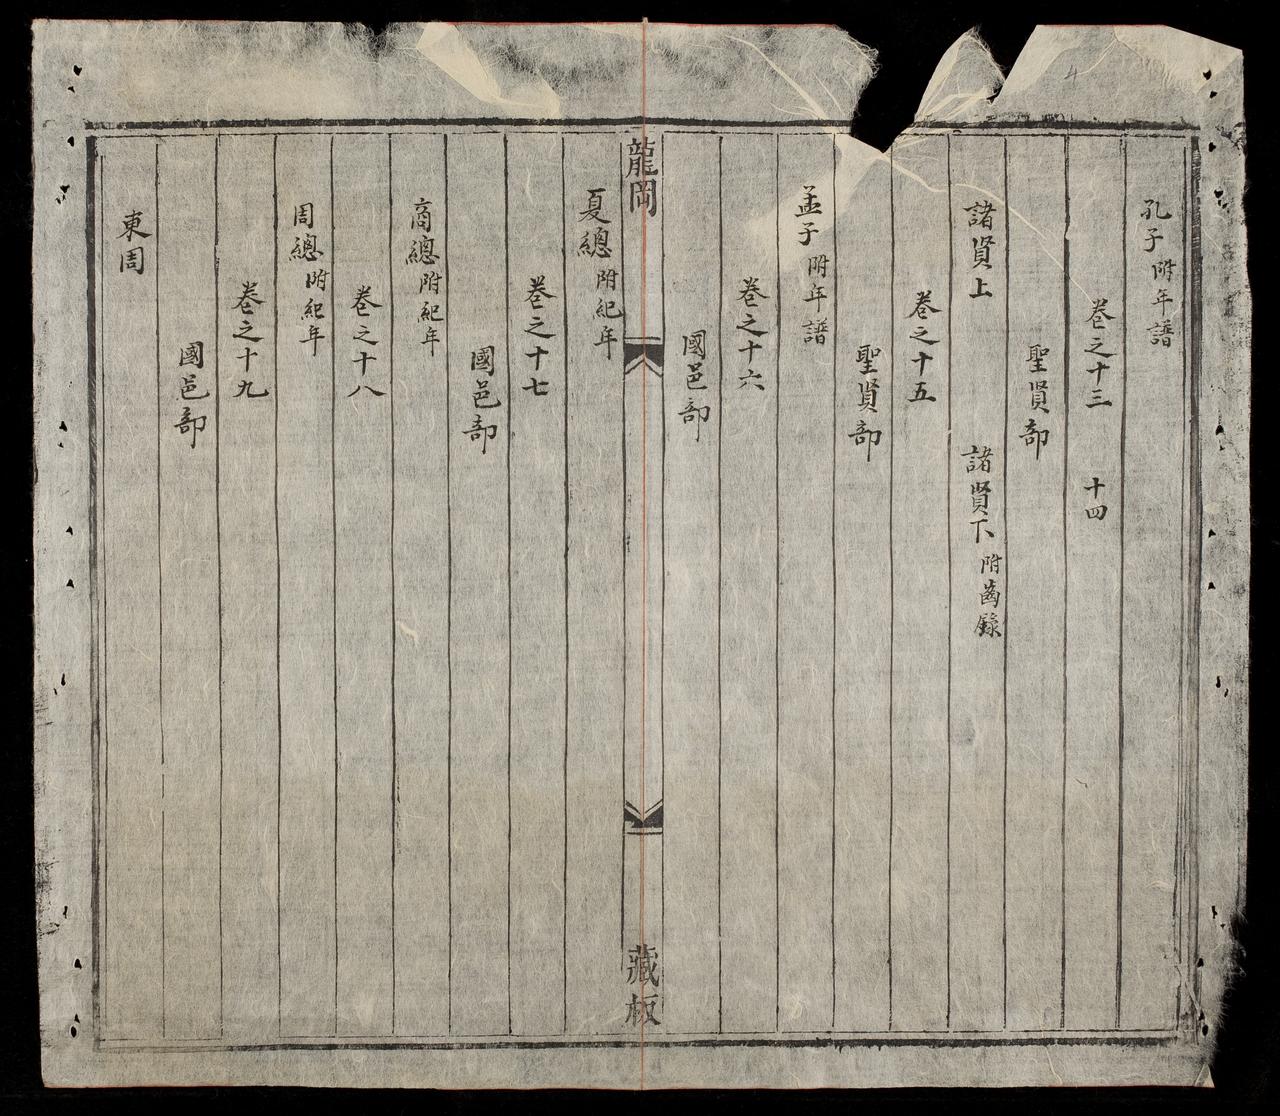 孔子附年譜
卷之十三 十四
聖賢部
諸賢上 諸賢下附齒錄
卷之十五
聖賢部
孟子附年譜
卷之十六
國邑部
龍岡
藏板
夏總附紀年
卷之十七
國邑部
商總附紀年
卷之十八
周總附紀年
卷之十九
國邑部
東周
4